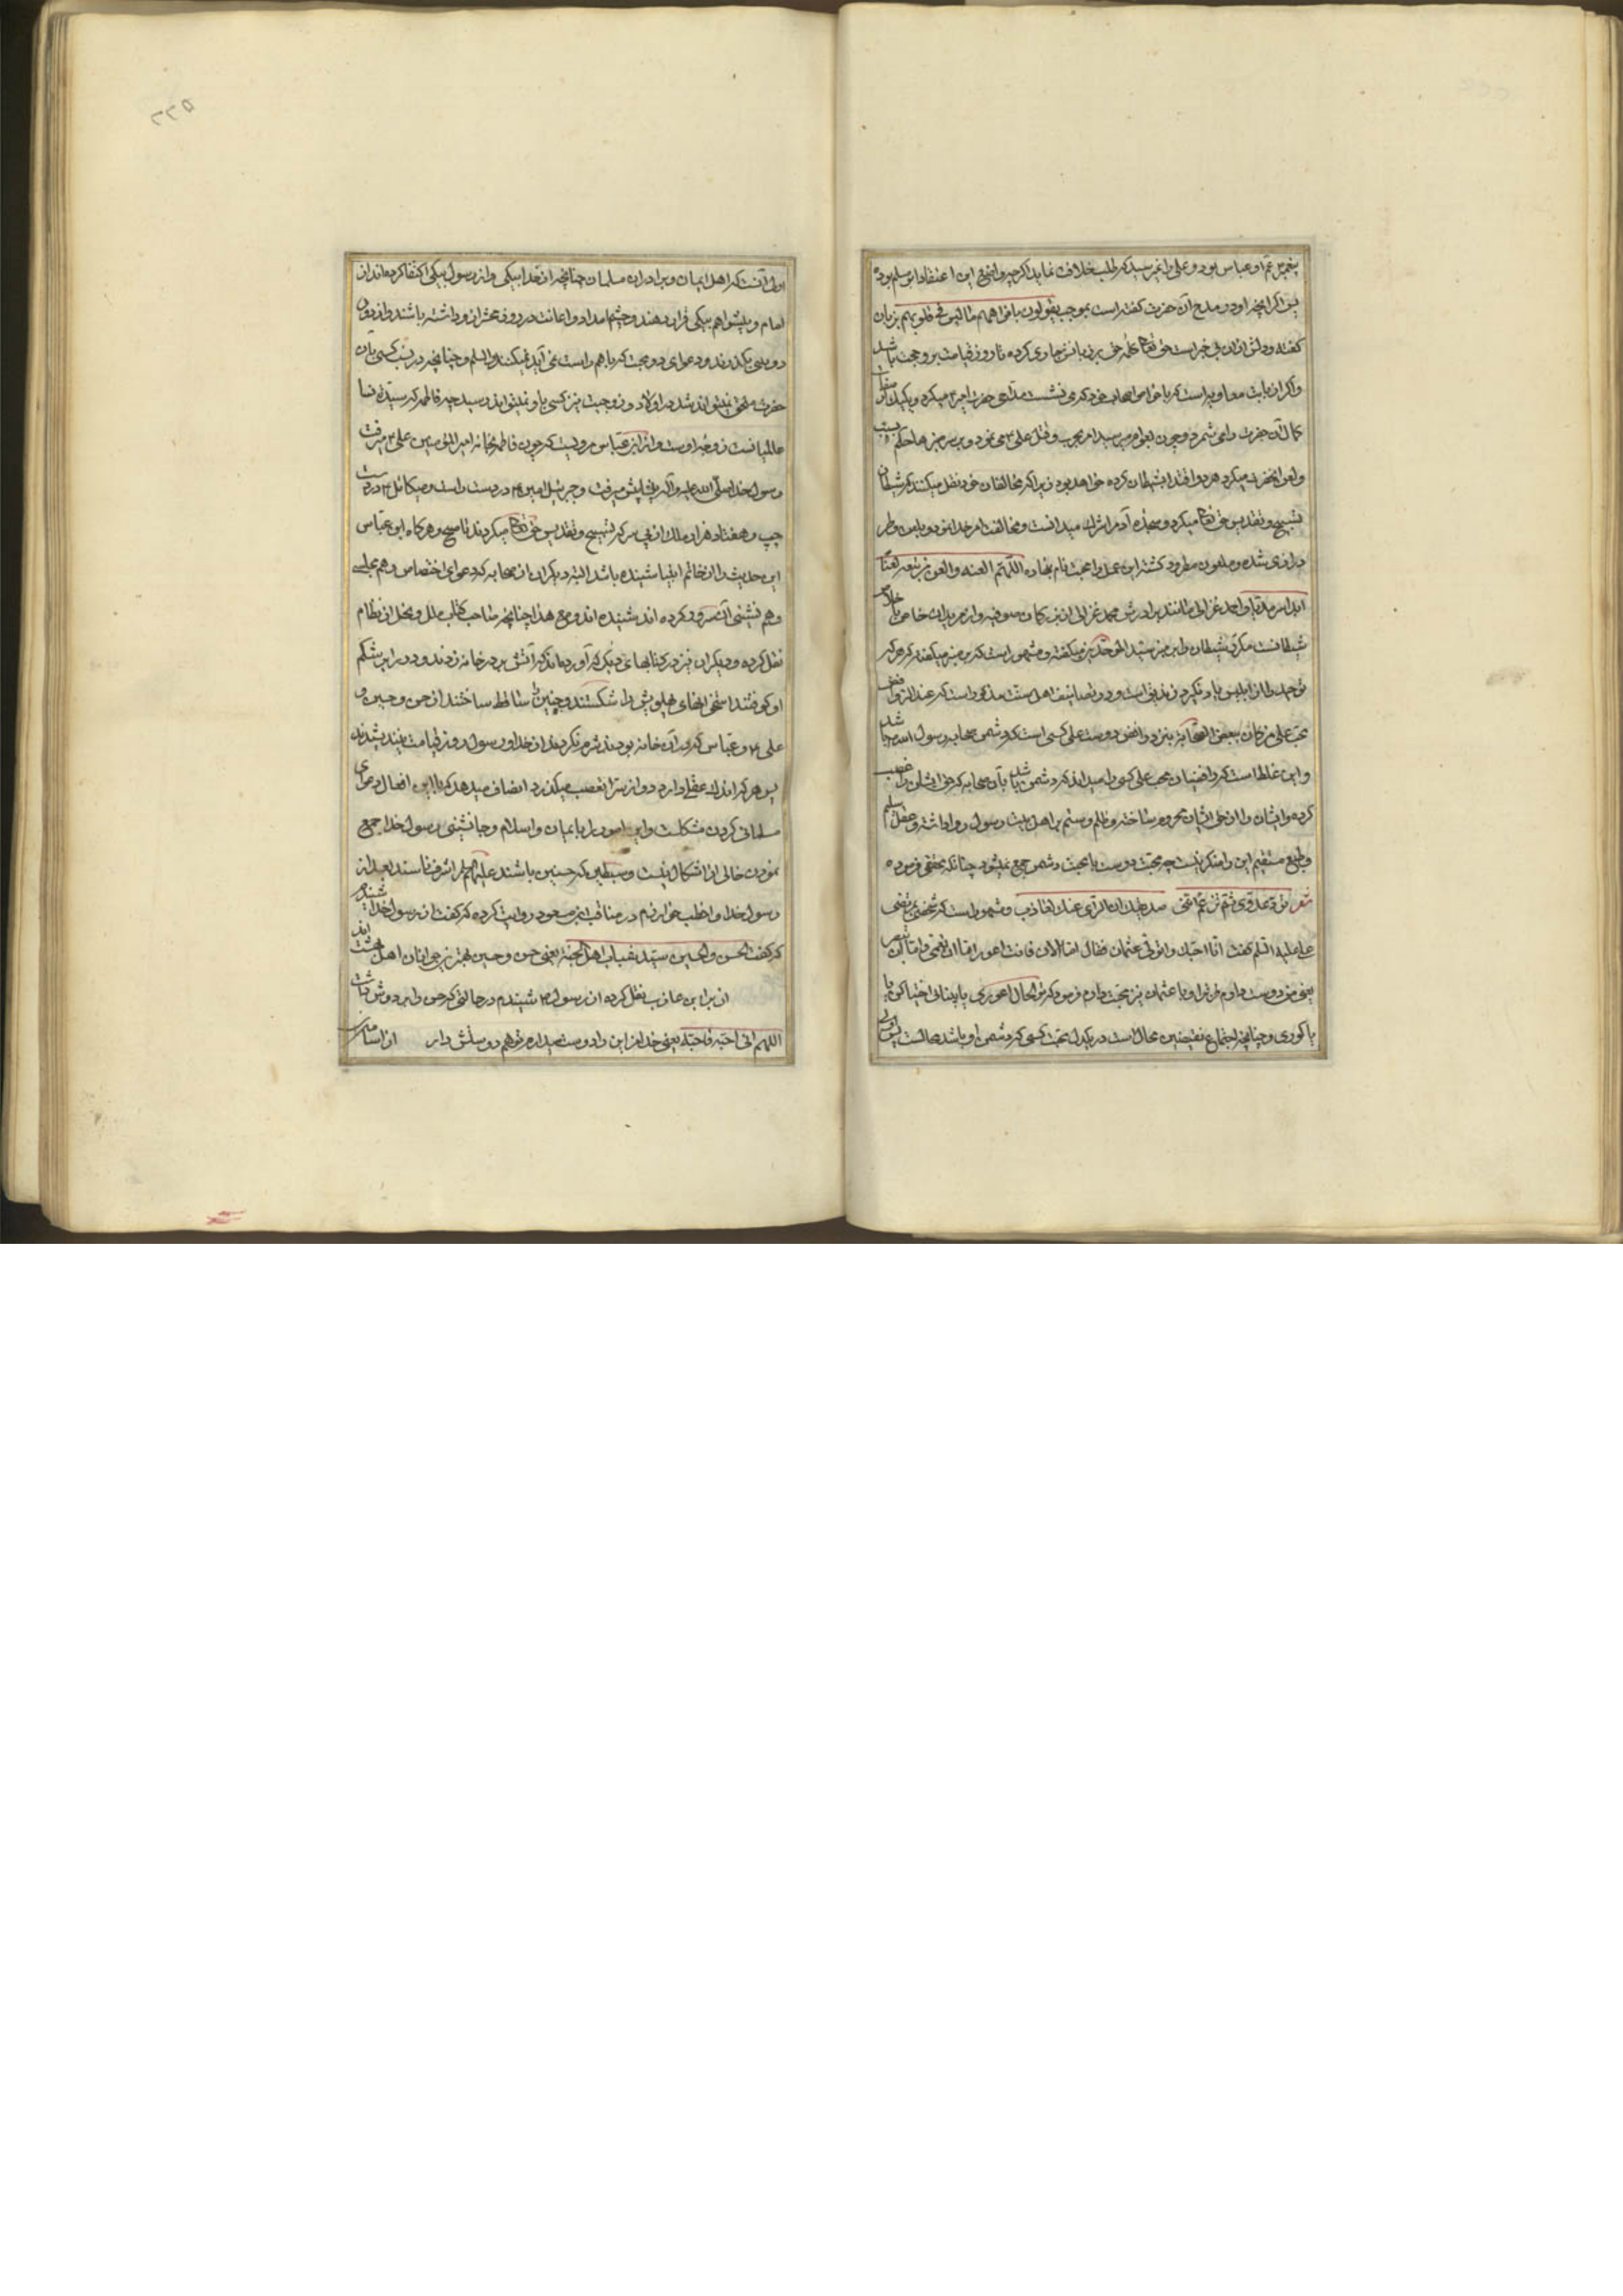 پیغمبر عم او عباس بود و علی را نمیرسید که طلب خلافت نماید اگرچه واضح این اعتقاد ابو مسلم بوده
پس اگر آنچه او در مدح آن حضرت گفته است بموجب یقولون بافواههم ما لیس فی قلوبهم بزبان
گفته و دلش از ان بی خبر است حق تعالی کلمه حق بر زبانش جاری کرده تا روز قیامت بر و حجت باشد
و اگر از بابت معاویه است که با خواص اصحاب خود که می نشست مداحی حضرت امیر میکرد و یک یک از صفات
کمال آن حضرت را می شمرد و چون بعوام میرسید امر بحرب و قتل علی می نمود و بر سر منبرها حکم بسب
و لعن آنحضرت میکرد هر دو اقتدا بشیطان کرده خواهد بود زیرا که مخالفان خود نقل میکنند که شیطان
تسبیح و تقدیس حق تعالی میکرد و سجده آدم را شرک میدانست و مخالفت امر خدا
شده و ملعون و مطرود گشته این عمل را محبت نام نهاده اللهم العنه والعن من تبعه لعنا
و احمد غزالی مانند برادرش محمد غزالی از بزرگان صوفیه و از مریدان خاص با اخلاص
شیطانست مکرر شیطان را بر منبر سید الموحدین میگفته و مشهور است که بر منبر میگفته که هر که
توحید را از ابلیس یاد نگیرد زندیق است و در تصانیف اهل سنت مذکور است که عند الروافض
محب علی من کان یبغض الصحابة بنزد روافض دوست علی کسی است که دشمن صحابه رسول الله باشد
و این غلط است که رافضیان محب علی کسی را میدانند که دشمن باشد بآن صحابه که حق ایشان را غصب
کرده و ایشان را از حق ایشان محروم ساخته و ظلم و ستم بر اهل بیت رسول روا داشته و عقل سلیم
و طبع مستقیم این را منکر نیست چه محبت دوست با محبت دشمن جمع نمیشود چنانکه محققی فرموده
شعر تود عدوی ثم تزعم اننی صدیقک ان الرای عنک لعازب و مشهور است که شخصی بمرتضی
علی علیه السلم گفت انا احبک واتولی عثمان فقال اما الان فانت اعور اما ان تعمی واما ان تبصر
یعنی من دوست دارم ترا و با عثمان نیز محبت دارم فرمود که تو الحال اعوری یا بینائی اختیار کن یا
یا کوری و چنانچه اجتماع نقیضین محال است در یک دل محبت کسی که دشمن او باشد محالست پس اولی
اولی آنست که اهل ایمان و برادران مسلمان چنانچه از خدا بیکی و از رسول بیکی اکتفا کرده اند از
امام و پیشوا هم بیکی قرار دهند و چشم امداد و اعانت در روز محشر از و داشته باشند و از دوی
دوستی بگذرند و دعوای دو محبت که با هم راست نمی آید نمیکنند والسلم و چنانچه در نسب کسی بآن
حضرت ملحق نمیتواند شد در اولاد و زوجیت نیز کسی باو نمیتواند رسید چه فاطمه که سیده نساء
عالمیانست زوجه اوست و از ابن عباس مرویست که چون فاطمه بخانه امیر المؤمنین علی میرفت
رسول خدا صلی الله علیه وآله در پیش پیش میرفت و جبرئیل امین در دست راست و میکائیل در دست
چپ و هفتاد هزار ملک از پی سر که تسبیح و تقدیس حق تعالی میکردند تا صبح و هر گاه ابن عباس
این حدیث را از خاتم انبیا شنیده باشد البته دیگران از صحابه که دعوای اختصاص و هم مجلسی
و هم نشینی آن سرور کرده اند شنیده اند و مع هذا چنانچه صاحب کتاب ملل و نحل از نظام
نقل کرده و دیگران نیز در کتابهای دیگر آورده اند که آتش بر در خانه زدند و در را بر شکم
او کوفتند استخوانهای پهلویش را شکستند و جنین را ساقط ساختند از حسن و حسین و
علی و عباس که در آن خانه بودند شرم نکردند از خدا و رسول و روز قیامت نیندیشیدند
پس هر که اندک عقلی دارد و از سر تعصب میگذرد انصاف میدهد که با این افعال دعوای
مسلمانی کردن مشکلست و این امور را با ایمان و اسلام و جانشینی رسول خدا جمع
نمودن خالی از اشکال نیست و سبطین که حسنین باشند علیهما السلم اشرف ناسند بعد از
رسول خدا و اخطب خوارزم در مناقب از ابن مسعود روایت کرده که گفت از رسول خدا شنیدم
که گفت الحسن والحسین سیدا شباب اهل الجنة یعنی حسن و حسین بهترین جوانان اهل بهشت اند
از براء بن عازب نقل کرده از رسول شنیدم در حالتی که حسن را بر دوش داشت
اللهم انی احبه فاحبه یعنی خدایا من این را دوست میدارم تو هم دوستش دار از اسامه
۵۲۲